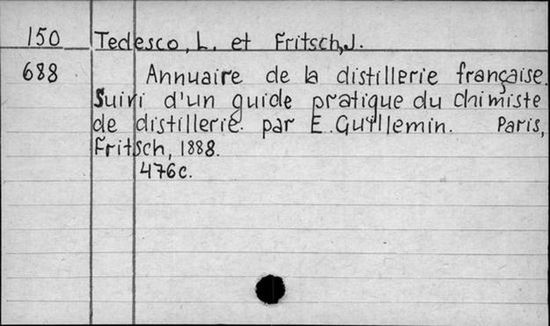 150 Tedesco, L. et Fritsch, J.
688 Annuaire de la distillerie française.
Suivi d'un guide pratique du chimiste
de distillerie. par E. Guillemin. Paris,
Fritsch, 1888.
476c.